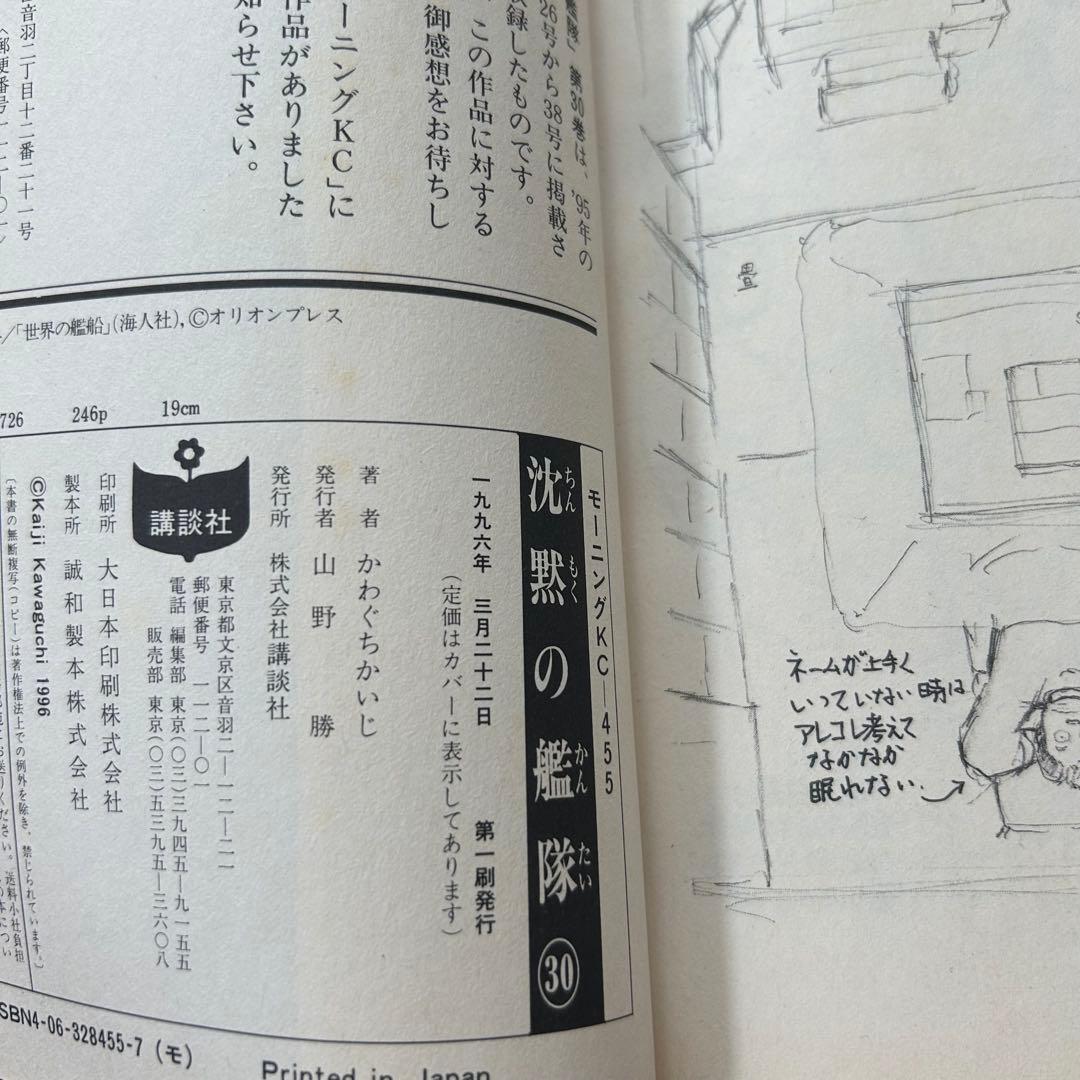 艦隊』第30巻は、'95年の
26号から38号に掲載さ
録したものです。
この作品に対する
御感想をお待ちし
ーニングKC」に
作品がありました
知らせ下さい。
音羽二丁目十二番二十一号
／「世界の艦船」(海人社),Ⓒオリオンプレス
726 246p 19cm
モーニングKC—455
沈黙の艦隊 ㉚
ちん もく かん たい
一九九六年 三月二十二日 第一刷発行
(定価はカバーに表示してあります)
著者 かわぐちかいじ
発行者 山野 勝
発行所 株式会社講談社
東京都文京区音羽二—一二—二一
郵便番号 一一二—〇一
電話 編集部 東京(〇三)三九四五—九一五五
販売部 東京(〇三)五三九五—三六〇八
講談社
印刷所 大日本印刷株式会社
製本所 誠和製本株式会社
ⒸKaiji Kawaguchi 1996
(本書の無断複写(コピー)は著作権法上での例外を除き、禁じられています。)
SBN4-06-328455-7 (モ)
Printed in Japan
畳
ネームが上手く
いっていない時は
アレコレ考えて
なかなか
眠れない。